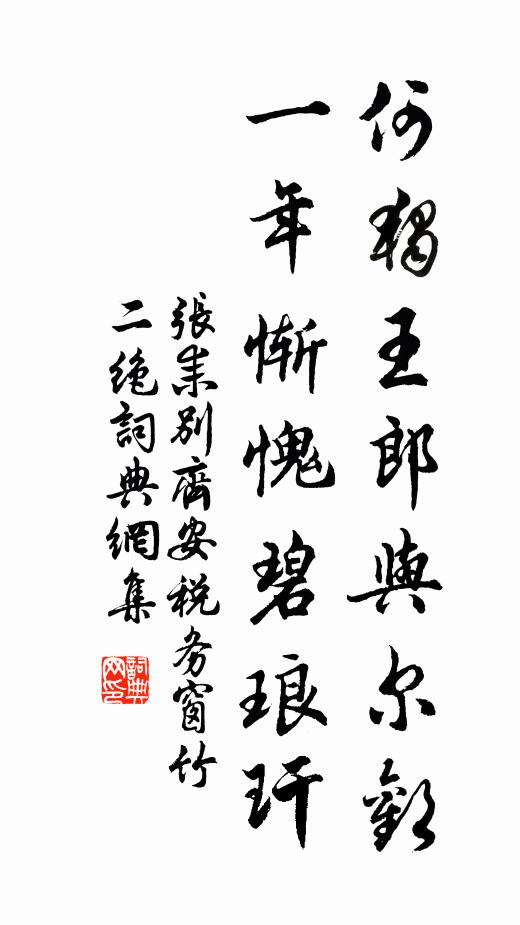 何獨王郎與尔歡
一年慚愧碧琅玕
張耒別齊安税务窗竹
二绝詞典網集
詞典網印